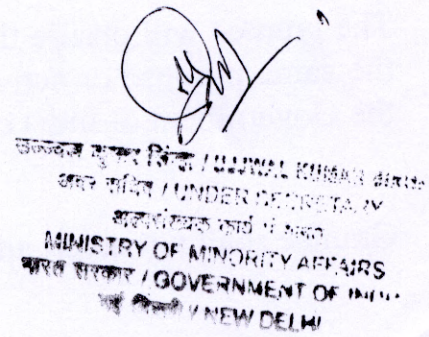 उज्ज्वल कुमार सिन्हा / UJJWAL KUMAR
अवर सचिव / UNDER SECRETARY
अल्पसंख्यक कार्य
MINISTRY OF MINORITY AFFAIRS
भारत सरकार / GOVERNMENT OF
नई दिल्ली / NEW DELHI